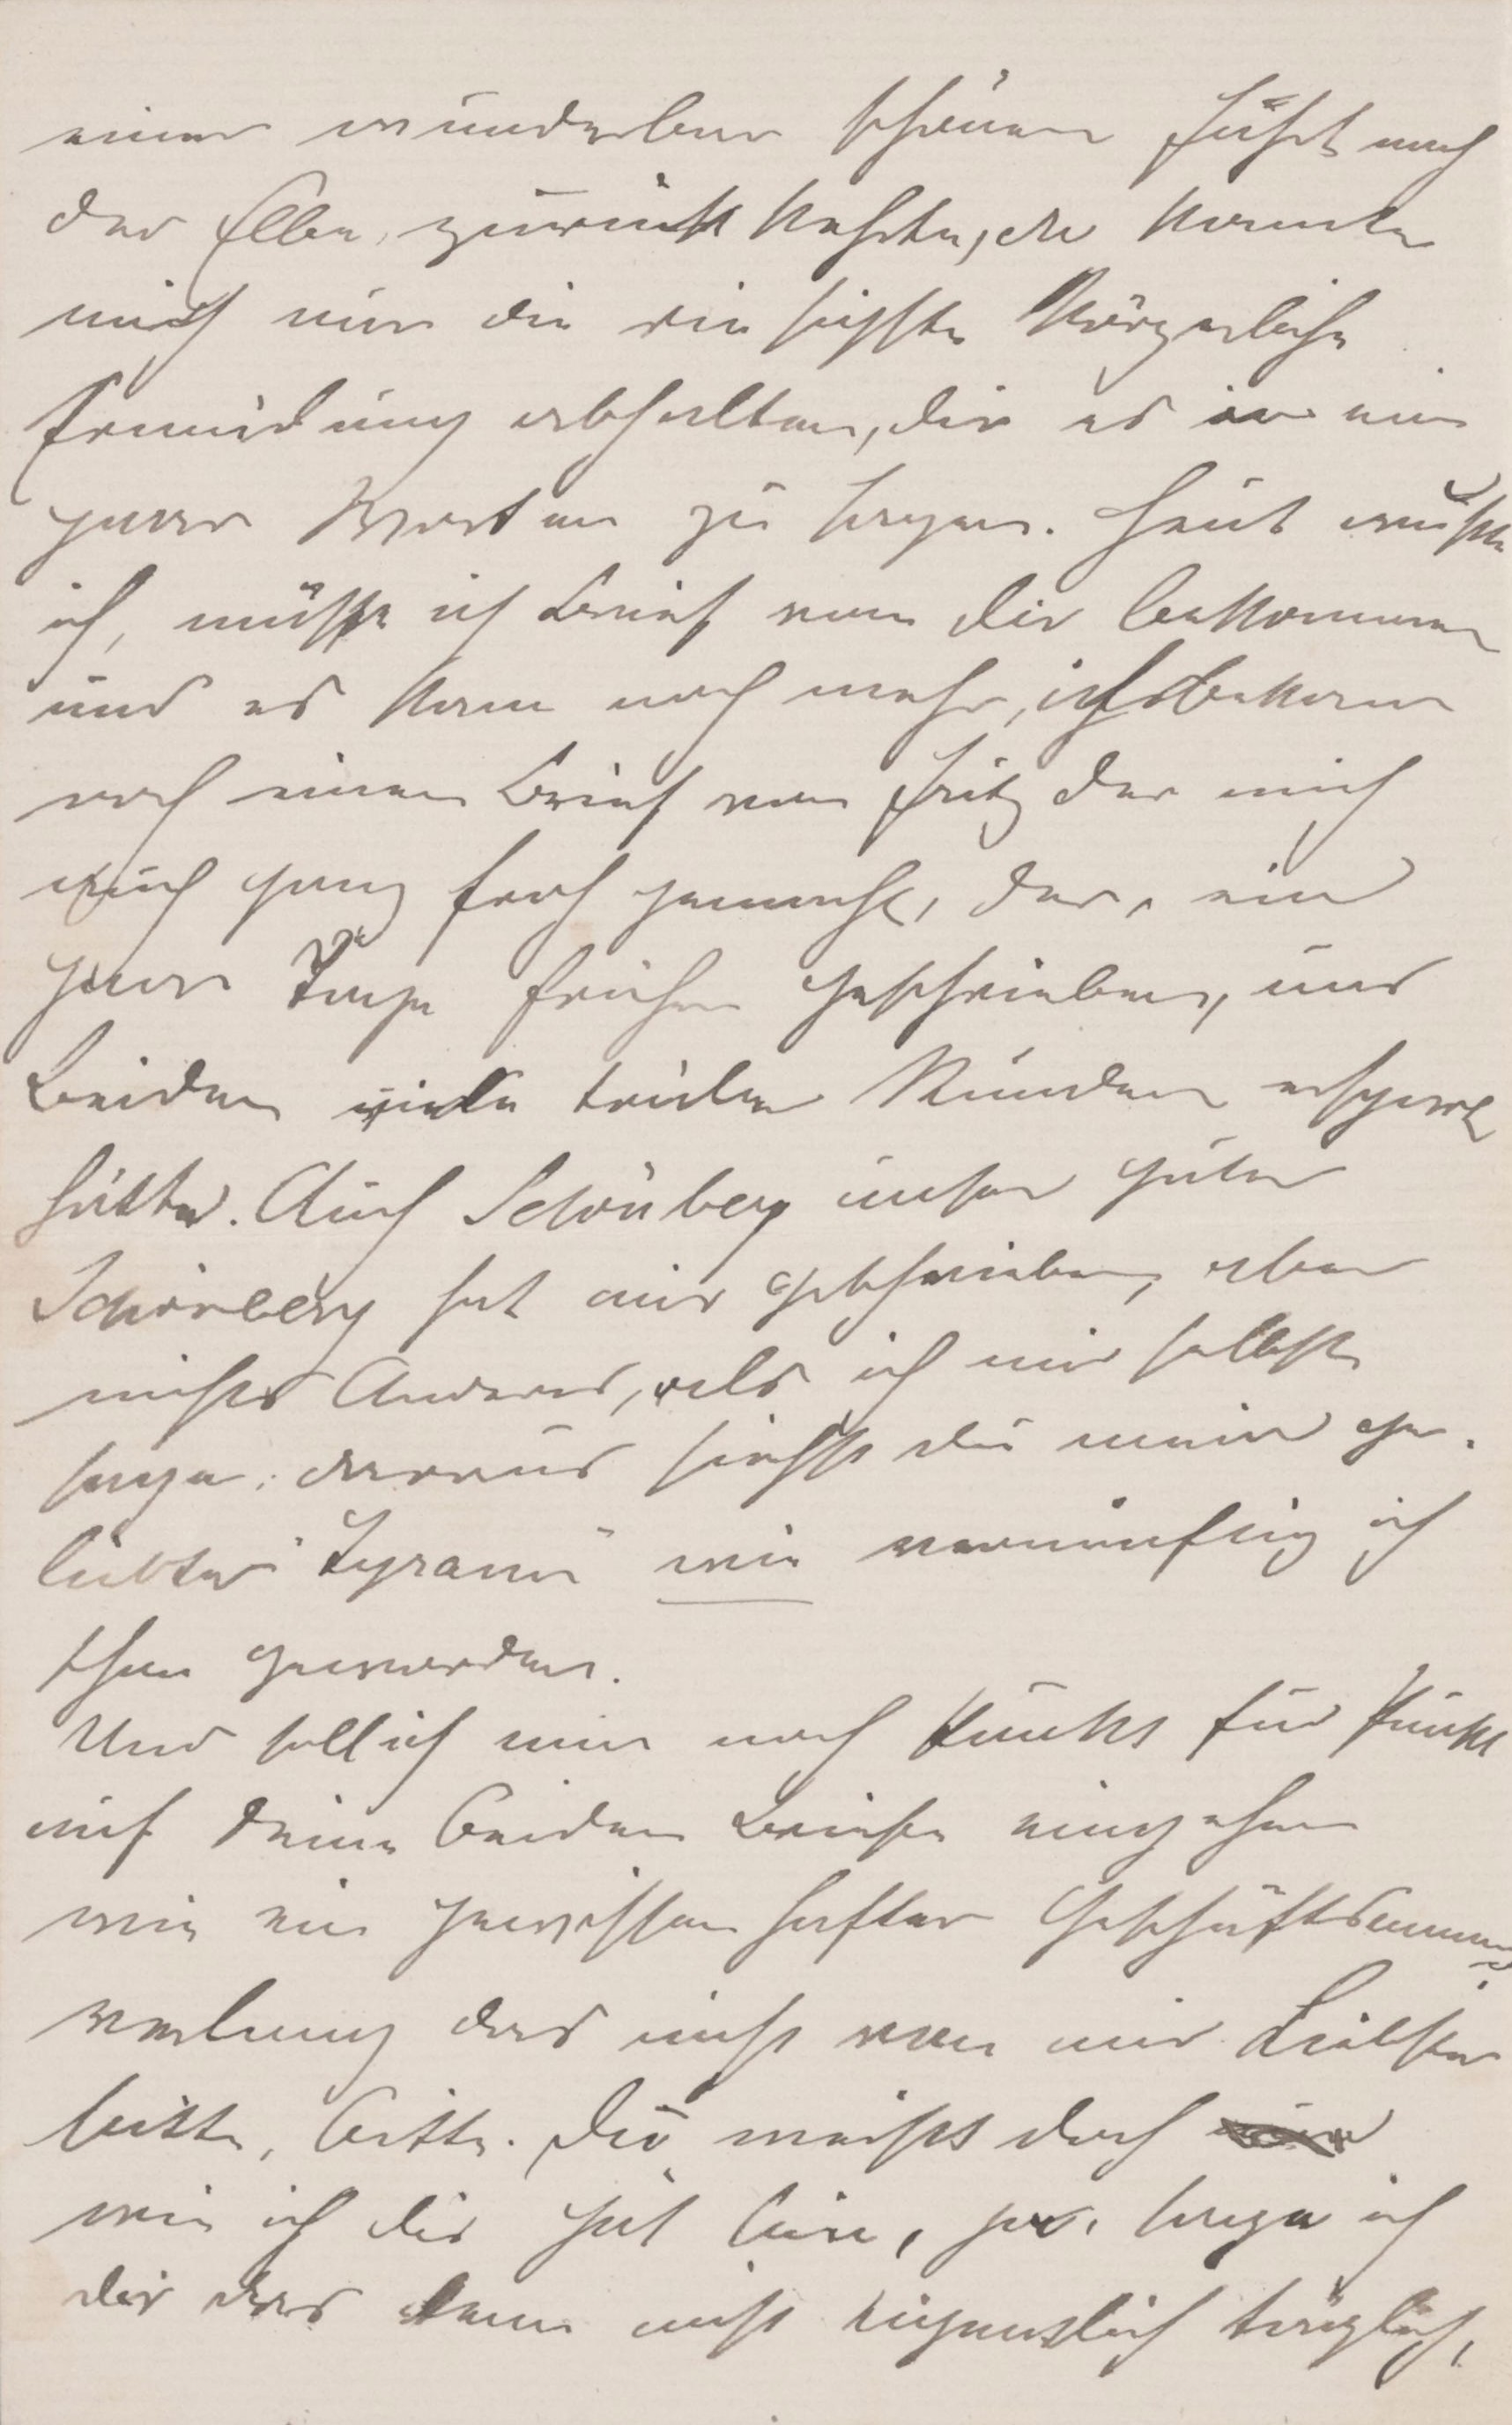 einer wunderbar schönen Fahrt nach
der Elbe, zurück kehrte, da konnte
mich nur die einfachste körperliche
Ermüdung abhalten, dir es in ein
paar Worten zu sagen. Heut wußte
ich, müsste ich Brief von dir bekommen
und es kam noch mehr, ich bekam
noch einen Brief von Fritz der mich
auch ganz froh gemacht, der, ein
paar Tage früher geschrieben, uns
Beiden viele trübe Stunden erspart
hätte. Auch Schönberg unser guter
Schönberg hat mir geschrieben, aber
nichts Anderes, als ich mir selbst
sage. daraus siehst du mein ge-
liebter Tyrann wie vernünftig ich
schon geworden.
Und soll ich nun noch Punkt für Punkt
auf deine beiden Briefe eingehen
wie ein gewissenhafter Geschäftsmann,
verlang das nicht von mir Liebster
bitte, bitte. Du weißt doch
wie ich dir gut bin, ja, sage ich
dir das denn nicht eigentlich täglich,